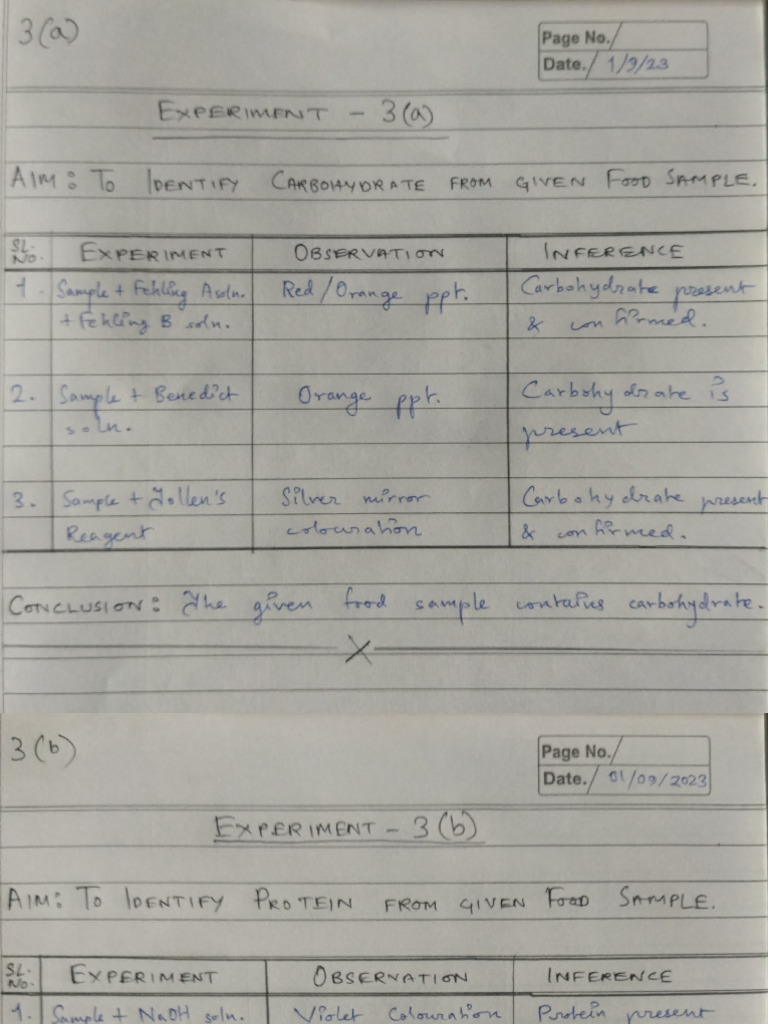 3(a)
Page No.
Date. 1/9/23
EXPERIMENT - 3(a)
AIM: TO IDENTIFY CARBOHYDRATE FROM GIVEN FOOD SAMPLE.
SL. NO. EXPERIMENT OBSERVATION INFERENCE
1. Sample + Fehling A soln. Red/Orange ppt. Carbohydrate present
+ Fehling B soln. & confirmed.
2. Sample + Benedict Orange ppt. Carbohydrate is
soln. present
3. Sample + Tollen's Silver mirror Carbohydrate present
Reagent colouration & confirmed.
CONCLUSION: The given food sample contains carbohydrate.
X
3(b)
Page No.
Date. 01/09/2023
EXPERIMENT - 3(b)
AIM: TO IDENTIFY PROTEIN FROM GIVEN FOOD SAMPLE.
SL. NO. EXPERIMENT OBSERVATION INFERENCE
1. Sample + NaOH soln. Violet Colouration Protein present